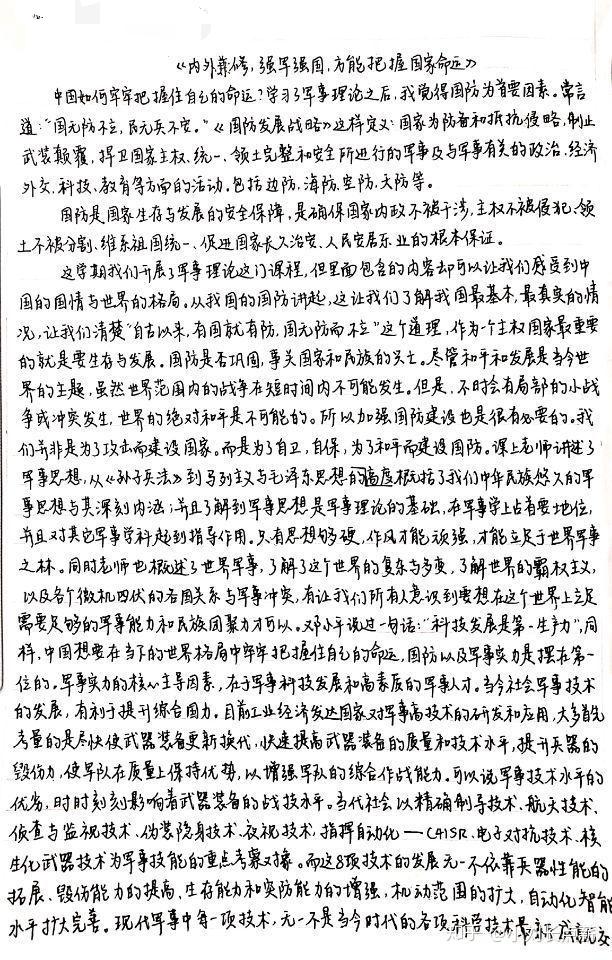 《内外兼修,强军强国,方能把握国家命运》
中国如何牢牢把握住自己的命运?学习了军事理论之后,我觉得国防为首要因素。常言
道:“国无防不立,民无兵不安。”《国防发展战略》这样定义:国家为防备和抵抗侵略,制止
武装颠覆,捍卫国家主权、统一、领土完整和安全所进行的军事及与军事有关的政治、经济
外交、科技、教育等方面的活动。包括边防,海防,空防,天防等。
国防是国家生存与发展的安全保障,是确保国家内政不被干涉,主权不被侵犯、领
土不被分割、维系祖国统一、促进国家长久治安、人民安居乐业的根本保证。
这学期我们开展了军事理论这门课程,但里面包含的内容却可以让我们感受到中
国的国情与世界的格局。从我国的国防讲起,这让我们了解我国最基本,最真实的情
况,让我们清楚“自古以来,有国就有防,国无防而不立”这个道理,作为一个主权国家最重要
的就是要生存与发展。国防是否巩固,事关国家和民族的兴亡。尽管和平和发展是当今世
界的主题,虽然世界范围内的战争在短时间内不可能发生。但是,不时会有局部的小战
争或冲突发生,世界的绝对和平是不可能的。所以加强国防建设也是很有必要的。我
们并非是为了攻击而建设国家。而是为了自卫,自保,为了和平而建设国防。课上老师讲述了
军事思想,从《孙子兵法》到马列主义与毛泽东思想的高度概括了我们中华民族悠久的军
事思想与其深刻内涵;并且了解到军事思想是军事理论的基础,在军事学上占首要地位,
并且对其它军事学科起到指导作用。只有思想够硬,作风才能顽强,才能立足于世界军事
之林。同时老师也概述了世界军事,了解了这个世界的复杂与多变,了解世界的霸权主义,
以及各个微机四伏的各国关系与军事冲突,有让我们所有人意识到要想在这个世界上立足
需要足够的军事能力和民族团聚力才可以。邓小平说过一句话:“科技发展是第一生产力”,同
样,中国想要在当下的世界格局中牢牢把握住自己的命运,国防以及军事实力是摆在第一
位的。军事实力的核心主导因素,在于军事科技发展和高素质的军事人才。当今社会军事技术
的发展,有利于提升综合国力。目前工业经济发达国家对军事高技术的研发和应用,大多首先
考量的是尽快使武器装备更新换代,快速提高武器装备的质量和技术水平,提升兵器的
毁伤力,使军队在质量上保持优势,以增强军队的综合作战能力。可以说军事技术水平的
优劣,时时刻刻影响着武器装备的战技水平。当代社会以精确制导技术、航天技术、
侦查与监视技术、伪装隐身技术、夜视技术、指挥自动化一C4ISR、电子对抗技术、核
生化武器技术为军事技能的重点考察对象。而这8项技术的发展无一不依靠兵器性能的
拓展、毁伤能力的提高、生存能力和突防能力的增强,机动范围的扩大,自动化智能
水平扩大完善。现代军事中每一项技术,无一不是当今时代的各项科学技术
知乎